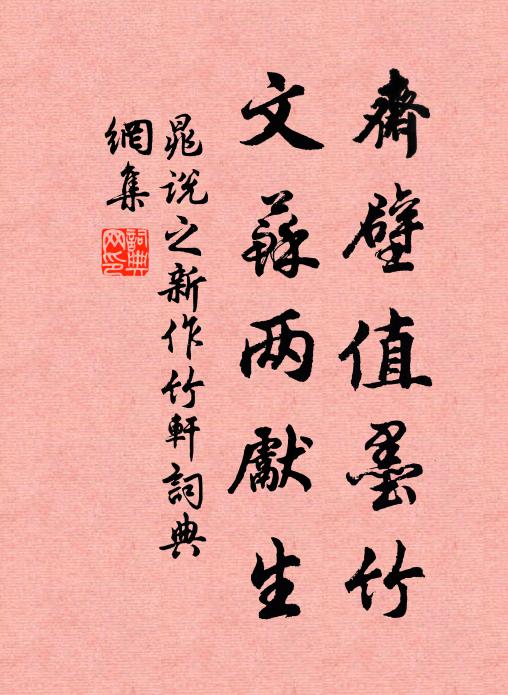 齋壁值墨竹
文蘇两獻生
晁説之新作竹軒詞典
網集
詞典
网印